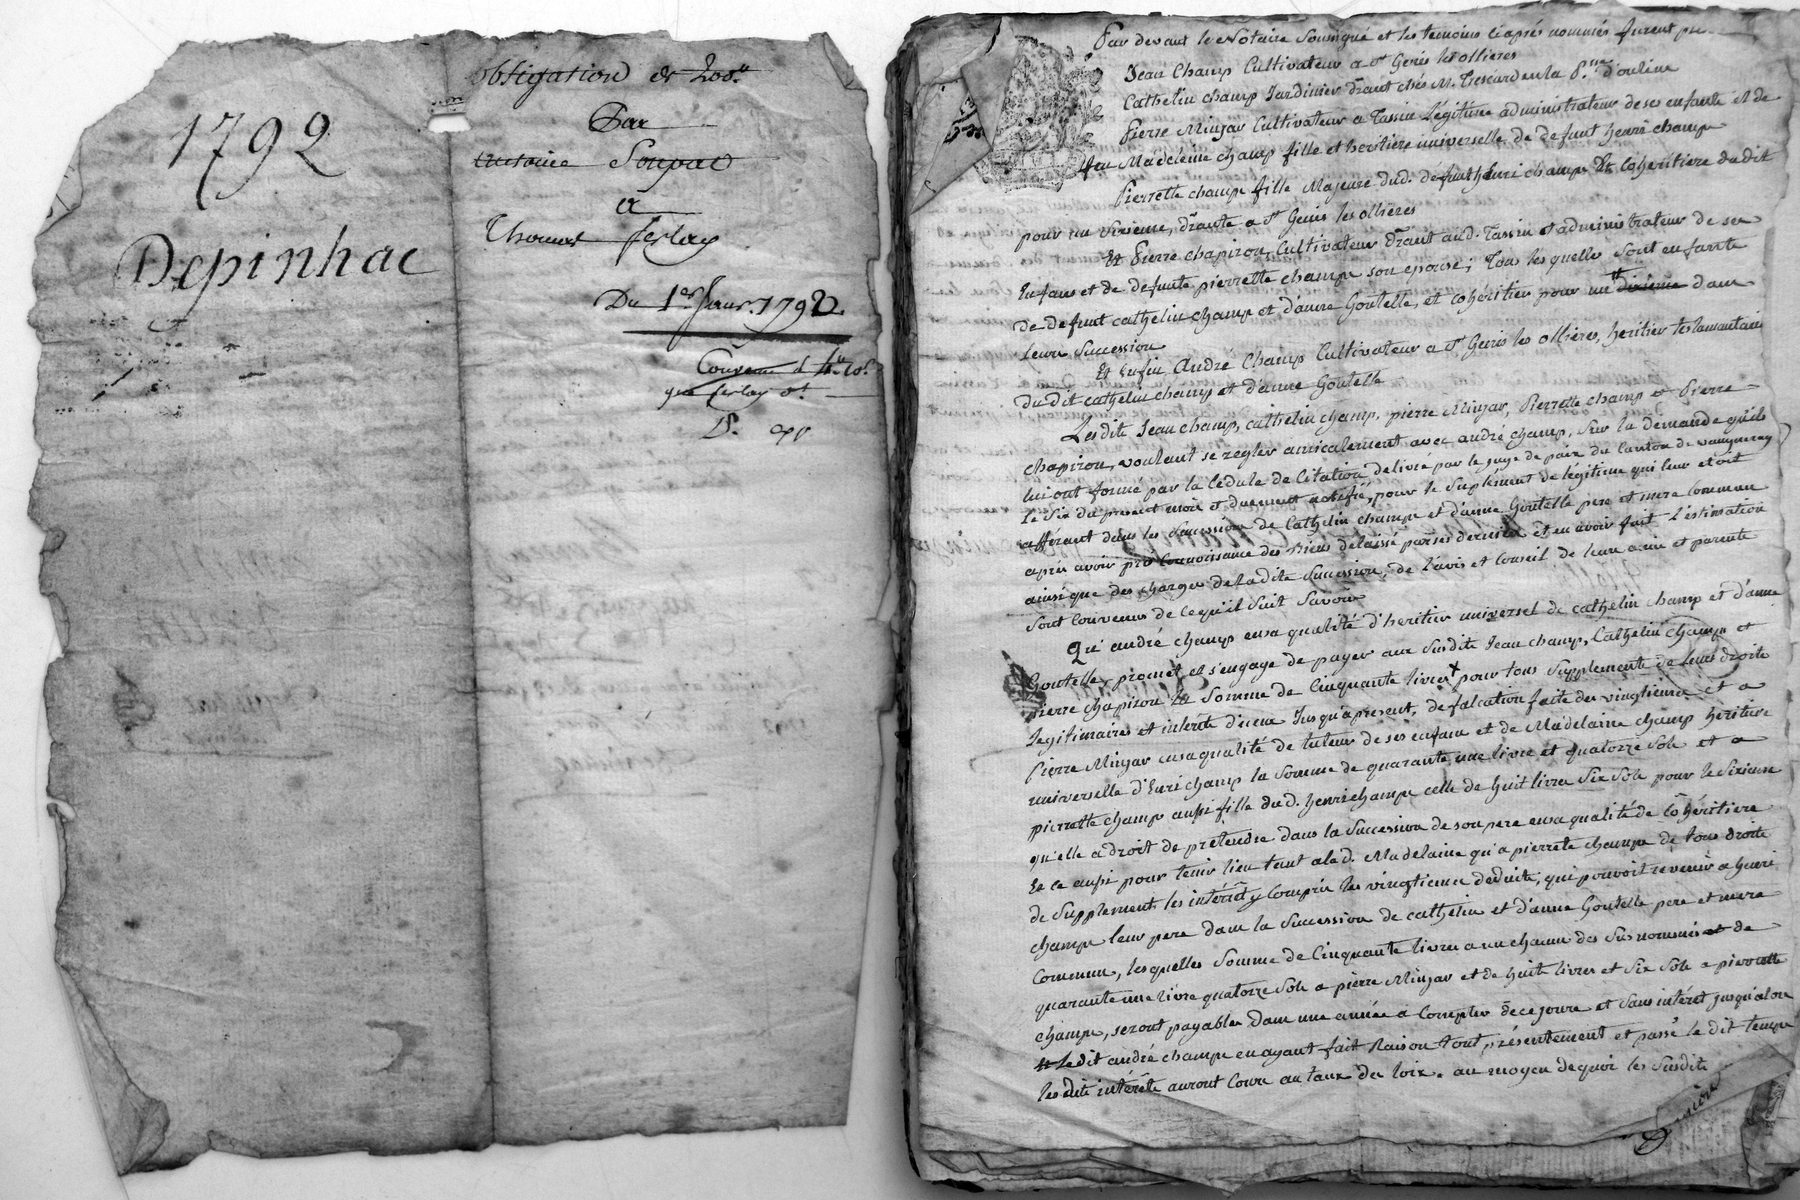 1792
Depinhac
obligation de 200.tt
Par
Soupat
a
Thomas ferlay
Du 1er Janv. 1792.
Par devant le Notaire Soussigné et les temoins ci après nommés furent
Jean Champ Cultivateur a St Genis les ollieres
Cathelin champ Jardinier Draut chés M. Trescard en la P.sse d'oulins
Pierre Minjar Cultivateur a Tassin Légitime administrateur de ses enfants et de
feu Madeleine champ fille et heritiere universelle de defunt henri champ
Pierrette champ fille Majeure dud. defunt henri champ Et Coheritiere dudit
pour un Sixieme, Dte a St Genis les ollieres
Et Pierre chapiron, Cultivateur Draut aud. Tassin et administrateur de ses
Enfans et de defunte pierrette champ son epouse; Tous lesquelles sont enfants
de defunt cathelin champ et d'anne Goutelle, et coheritier pour un dixieme dans
Leurs Succession
Et Enfin André Champ Cultivateur a St Genis les ollieres, heritier testamentaire
du dit cathelin champ et d'anne Goutelle
Lesdits Jean champ, cathelin champ, pierre Minjar, Pierrette champ et Pierre
chapiron, voulant se regler amicalement avec andré champ, sur la demande qu'ils
lui ont formé par la Cedule de Citation delivré par le juge de paix du Canton de vaugneray
le six du present mois et duement notifié, pour le Suplement de légitime qui leur etoit
afférant dans les Succession de Cathelin champ et d'anne Goutelle pere et mere Commun
après avoir pris Connoissance des biens delaissé par ses derniers et en avoir fait L'estimation
ainsi que des charges de ladite Succession, de l'avis et Conseil de leurs amis et parents
Sont Convenus de ce qu'il Suit Savoir
Qu'andré champ en sa qualité d'heritier universel de cathelin champ et d'anne
Goutelle, promet et s'engage de payer aux Susdits Jean champ, Cathelin champ et
pierre chapiron la Somme de Cinquante livres pour tous Supplements de leurs droits
Legitimaires et interets d'iceux Jusqu'apresent, defalcation faite des vingtiemes et a
Pierre Minjar en sa qualité de tuteur de ses enfans et de Madelaine champ heritiere
universelle d'henri champ la Somme de quarante une livre et quatorze Sols et a
pierrette champ aussi fille dud. henri champ celle de huit livres Six Sols pour le Sixieme
qu'elle a droit de pretendre dans la Succession de son pere en sa qualité de Cohéritiere
Et ce aussi pour tenir lieu tant a lad. Madelaine qu'a pierrete champ de tous droits
de Supplement, les intérêt y Compris les vingtiemes deduits, qui pouvoit revenir a henri
champ leur pere dans la Succession de cathelin et d'anne Goutelle pere et mere
Commun, lesquelles Somme de Cinquante livres a un chacun des Susnommés et de
quarante une livre quatorze Sols a pierre Minjar et de huit livres et Six Sols a pierrette
champ, seront payables dans une année a Compter de ce jours et Sans intérêt jusqu'alors
ledit andré champ en ayant fait Raison tout présentement et passé le dit temps
lesdits intérêts auront Cours au taux des loix. au moyen de quoi les Susdits